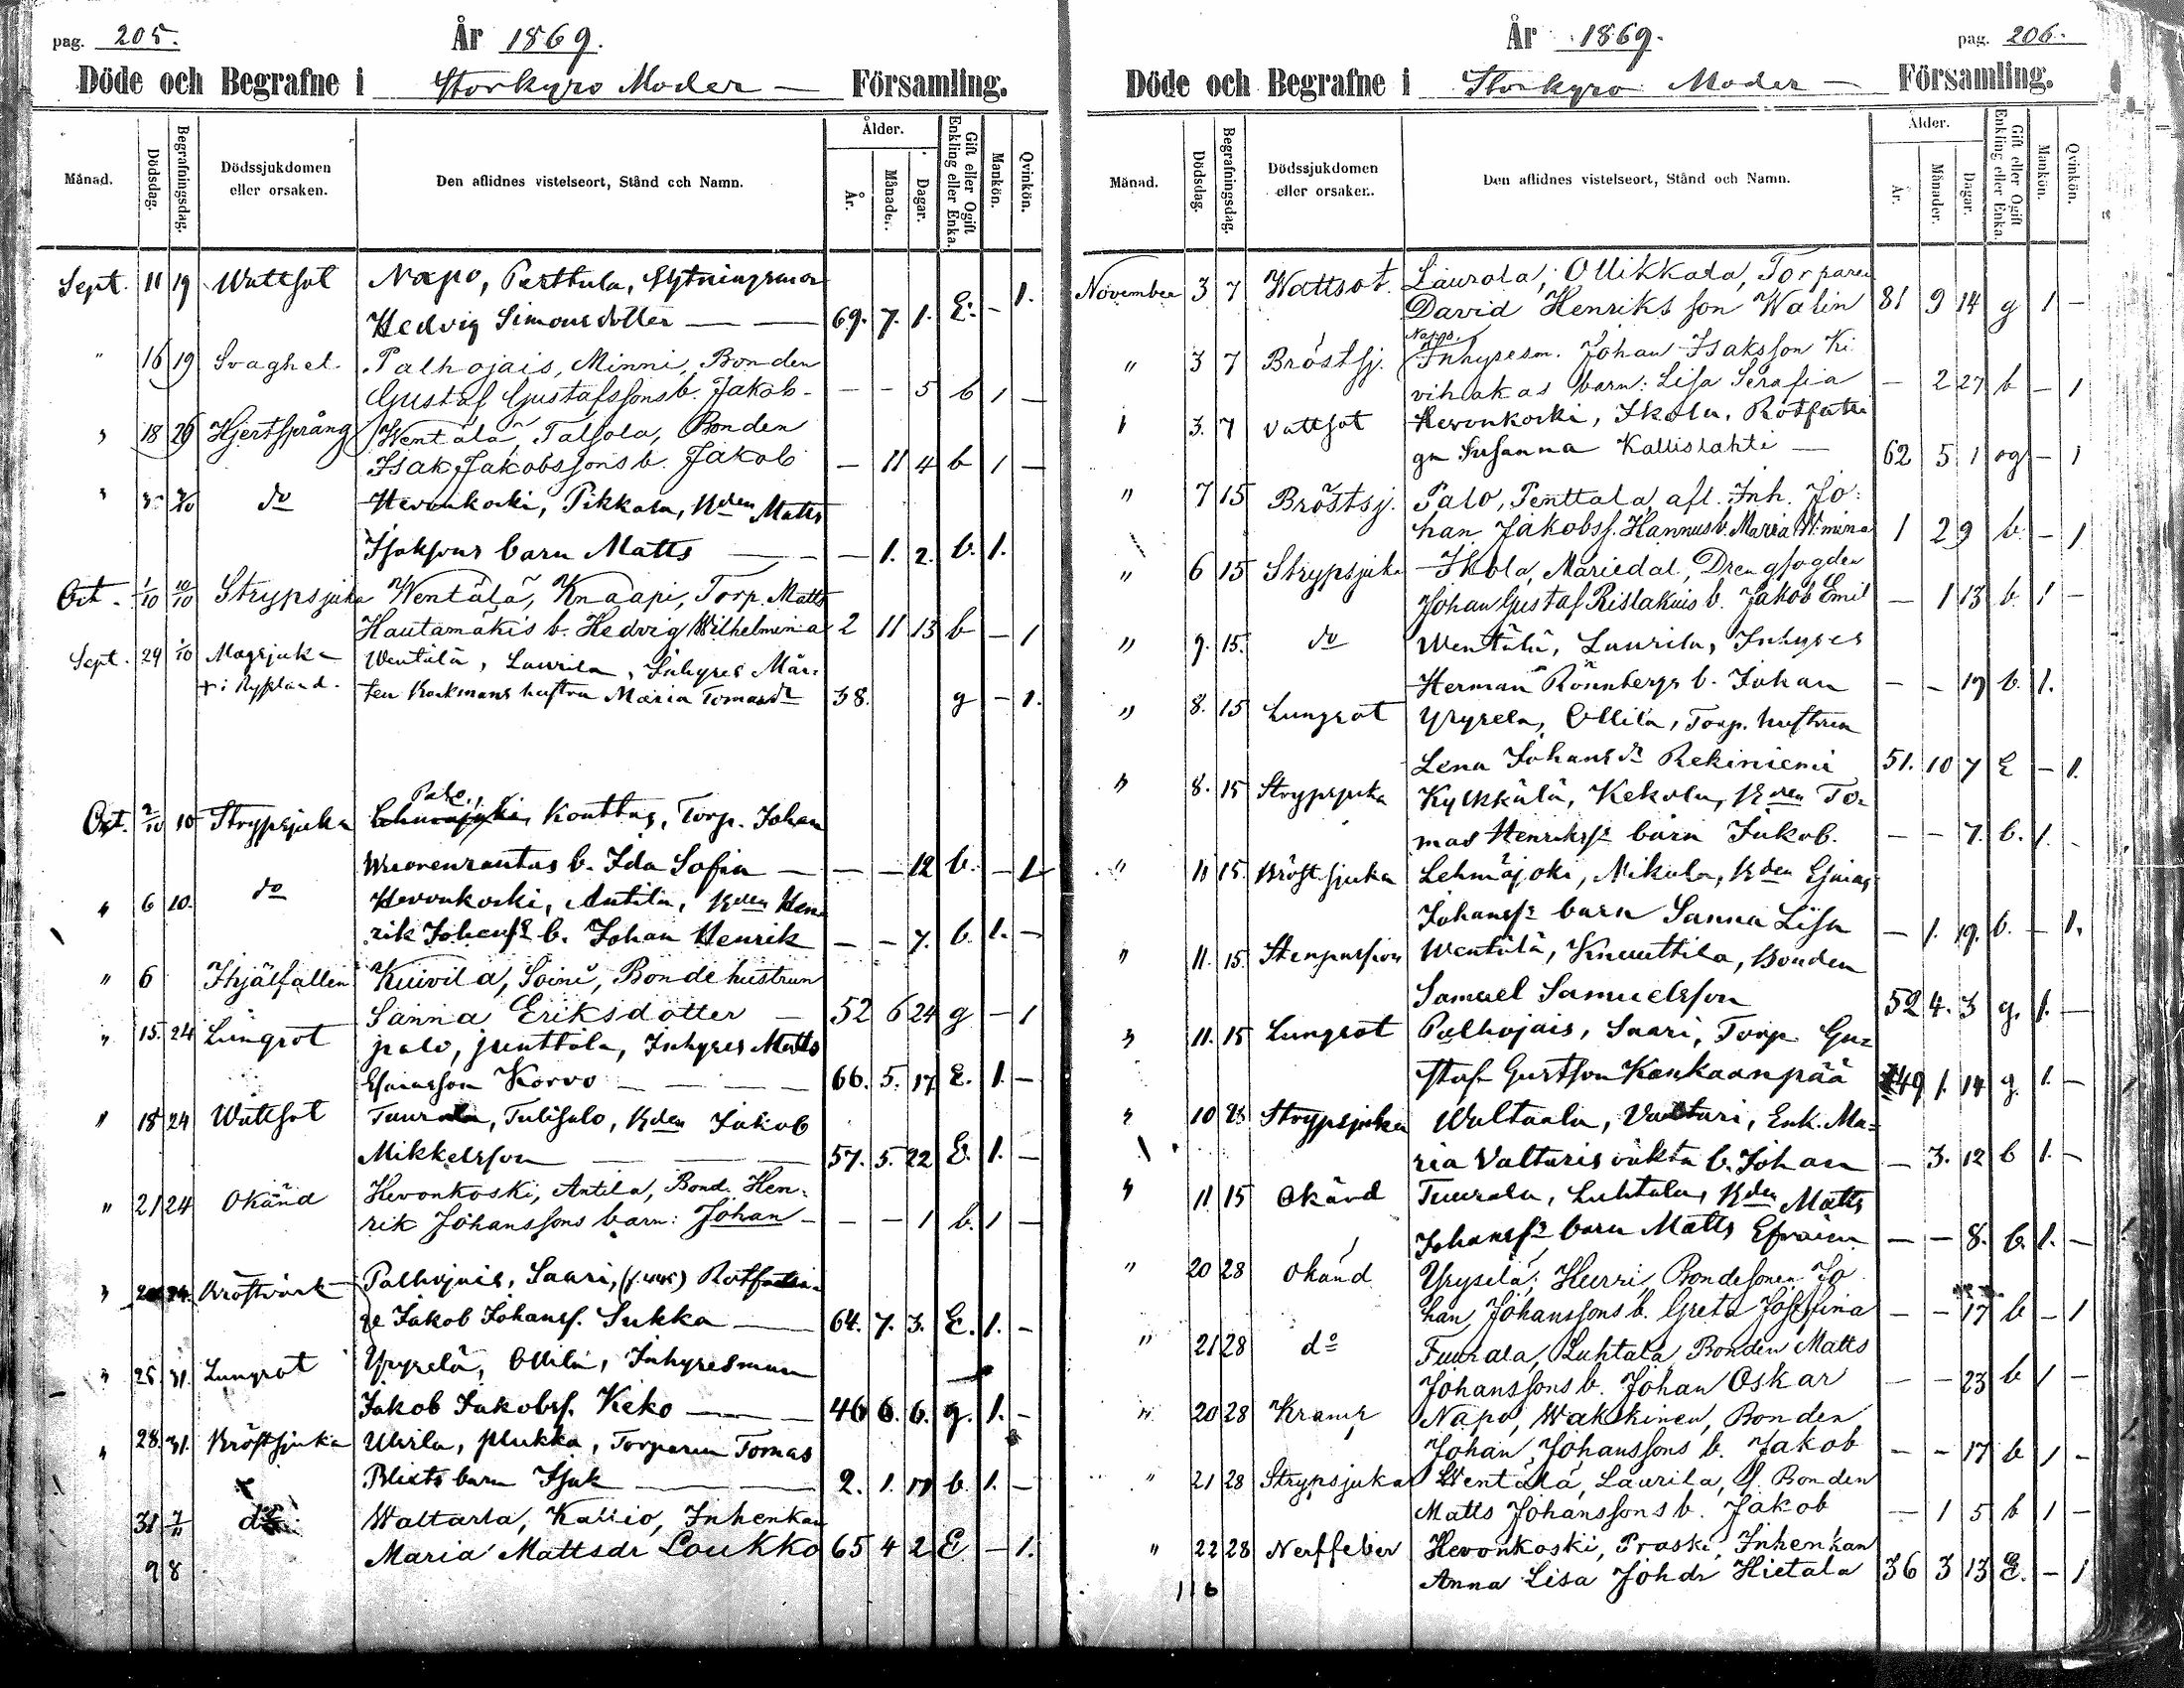 pag. 205.
År 1869.
Döde och Begrafne i Storkyro Moder — Församling.
Månad. Dödsdag. Begrafningsdag. Dödssjukdomen eller orsaken. Den aflidnes vistelseort, Stånd och Namn. Ålder. År. Månader. Dagar. Gift eller Ogift Enkling eller Enka. Mankön. Qvinkön.
Sept. 11 19 Wattsot Napo, Perttula, Sytningsmor
Hedvig Simonsdotter — — 69. 7. 1. E. – 1.
" 16 19 Svaghet. Palhojais, Minni, Bonden
Gustaf Gustafssons b. Jakob - — - 5 b 1 —
" 18 26 Hjertsprång Wentälä, Talsola, Bonden
Isak Jakobssons b. Jakob — 11 4 b 1 —
" do Hevonkoski, Pikkala, Bden Matts
Isaksons barn Matts — — — 1. 2. b. 1.
Oct. 1/10 10/10 Strypsjuka Wentälä, Knaapi, Torp. Matts
Hautamäkis b. Hedvig Wilhelmina 2 11 13 b — 1
Sept. 29 Magsjuka Wentälä, Laurila, Inhyses Mår-
+ i Ryssland. ten Korkmans hustru Maria Tomasdr 38. g – 1.
Palo,
Oct. 2/10 10 Strypsjuka Lehmäjoki, Kouttus, Torp. Johan
Wuorenrantas b. Ida Sofia — — — 12 b. — 1
" 6 10. do Hevonkoski, Antila, Bden Hen-
rik Johanss b. Johan Henrik — - 7. b. 1. —
" 6 Ihjälfallen Kuivila, Soini, Bondehustrun
Sanna Eriksdotter — 52 6 24 g — 1
" 15. 24 Lungsot Palo, Penttila, Inhyses Matts
Esaiasson Korvo — — — 66. 5. 17 E. 1. —
" 18 24 Wattsot Tuurala, Tulisalo, Bden Jakob
Mikkelsson — — — 57. 5. 22 E. 1. —
" 21 24 Okänd Hevonkoski, Antila, Bond. Hen-
rik Johanssons barn: Johan — — — 1 b. 1 —
" Bröstvärk Palhojais, Saari, Rotfatti-
ge Jakob Johanss. Sukka — 64. 7. 3. E. 1. —
" 25 31. Lungsot Yryselä, Ollila, Inhysesman
Jakob Jakobss. Keko — — 46 6. 6. g. 1. —
" 28. 31. Bröstsjuka Ulvila, Plukka, Torparen Tomas
Blixts barn Isak — — 2. 1. 17 b. 1. —
31 7/11 do Waltarla, Kallio, Inhenkan
Maria Mattsdr Loukko 65 4 2 E — 1.
98
År 1869.
pag. 206.
Döde och Begrafne i Storkyro Moder — Församling.
Månad. Dödsdag. Begrafningsdag. Dödssjukdomen eller orsaken. Den aflidnes vistelseort, Stånd och Namn. Ålder. År. Månader. Dagar. Gift eller Ogift Enkling eller Enka. Mankön. Qvinkön.
November 3 7 Wattsot. Laurola, Ollikkala, Torparen
David Henriksson Walin 81 9 14 g 1 —
Napo.
" 3 7 Bröstsj. Inhysesm. Johan Isaksson Ki
vihakas barn: Lisa Serafia — 2 27 b — 1
" 3. 7 Vattsot Hevonkoski, Ikola, Rotfatti
ga Susanna Kallislahti — 62 5 1 og — 1
" 7 15 Bröstsj. Palo, Penttala, afl. Inh. Jo-
han Jakobss. Hannus b. Maria W:mina 1 2 9 b — 1
" 6 15 Strypsjuka Ikola, Mariedal, Drengfogden
Johan Gustaf Rislakuis b. Jakob Emil — 1 13 b. 1 —
" 9. 15. do Wentälä, Laurila, Inhyses
Herman Rönnbergs b. Johan — — 17 b. 1.
" 8. 15 Lungsot Yryselä, Ollila, Torp. hustrun
Lena Johansdr Rekiniemi 51. 10 7 E — 1.
" 8. 15 Strypsjuka Kylkkälä, Kekola, Bden To-
mas Henrikss barn Jakob. — — 7. b. 1. -
" 11 15. Bröstsjuka Lehmäjoki, Mikola, Bden Esaias
Johanss barn Sanna Lisa — 1. 19. b. — 1.
" 11. 15. Stenpassion Wentälä, Knuuttila, Bonden
Samuel Samuelsson 52 4. 3 g. 1. —
" 11. 15 Lungsot Palhojais, Saari, Torp. Gu-
staf Gustsson Kankaanpää 49 1. 14 g. 1. —
" 10 28 Strypsjuka Waltaala, Valturi, Enk. Ma-
ria Valturis oäkta b. Johan — 3. 12 b 1. —
" 11 15 Okänd Tuurala, Luhtala, Bden Matts
Johanss barn Matts Efraim — — 8. b. 1. —
" 20 28 Okänd Yryselä, Hurri, Bondesonen Jo
han Johanssons b. Greta Josefina — — 17 b — 1
" 21 28 do Tuurala, Luhtala, Bonden Matts
Johanssons b. Johan Oskar — — 23 b 1 —
" 20 28 Kramp Napo, Wakkinen, Bonden
Johan Johanssons b. Jakob — — 17 b 1 —
" 21 28 Strypsjuka Wentälä, Laurila, f. Bonden
Matts Johanssons b. Jakob — 1 5 b 1 —
" 22 28 Nerffeber Hevonkoski, Praski, Inhenkan
Anna Lisa Johdr Hietala 36 3 13 E. — 1
116